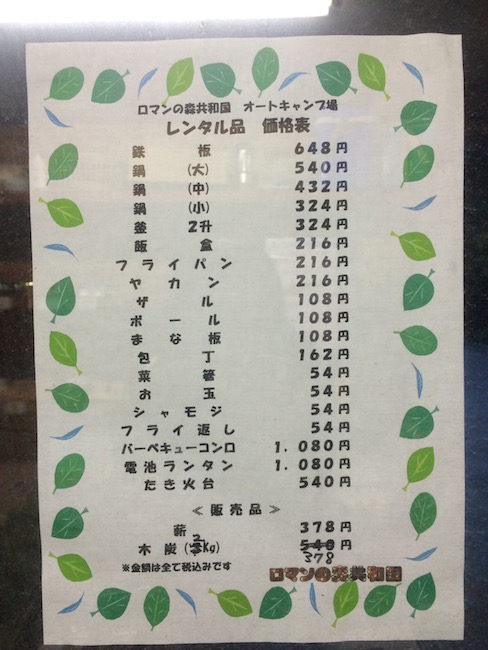 ロマンの森共和国 オートキャンプ場
レンタル品 価格表
鉄板 648円
鍋(大) 540円
鍋(中) 432円
鍋(小) 324円
釜 2升 324円
飯盒 216円
フライパン 216円
ヤカン 216円
ザル 108円
ボール 108円
まな板 108円
包丁 162円
菜箸 54円
お玉 54円
シャモジ 54円
フライ返し 54円
バーベキューコンロ 1.080円
電池ランタン 1.080円
たき火台 540円
≪販売品≫
薪 378円
木炭(2Kg) 540円
378
※金額は全て税込みです
ロマンの森共和国